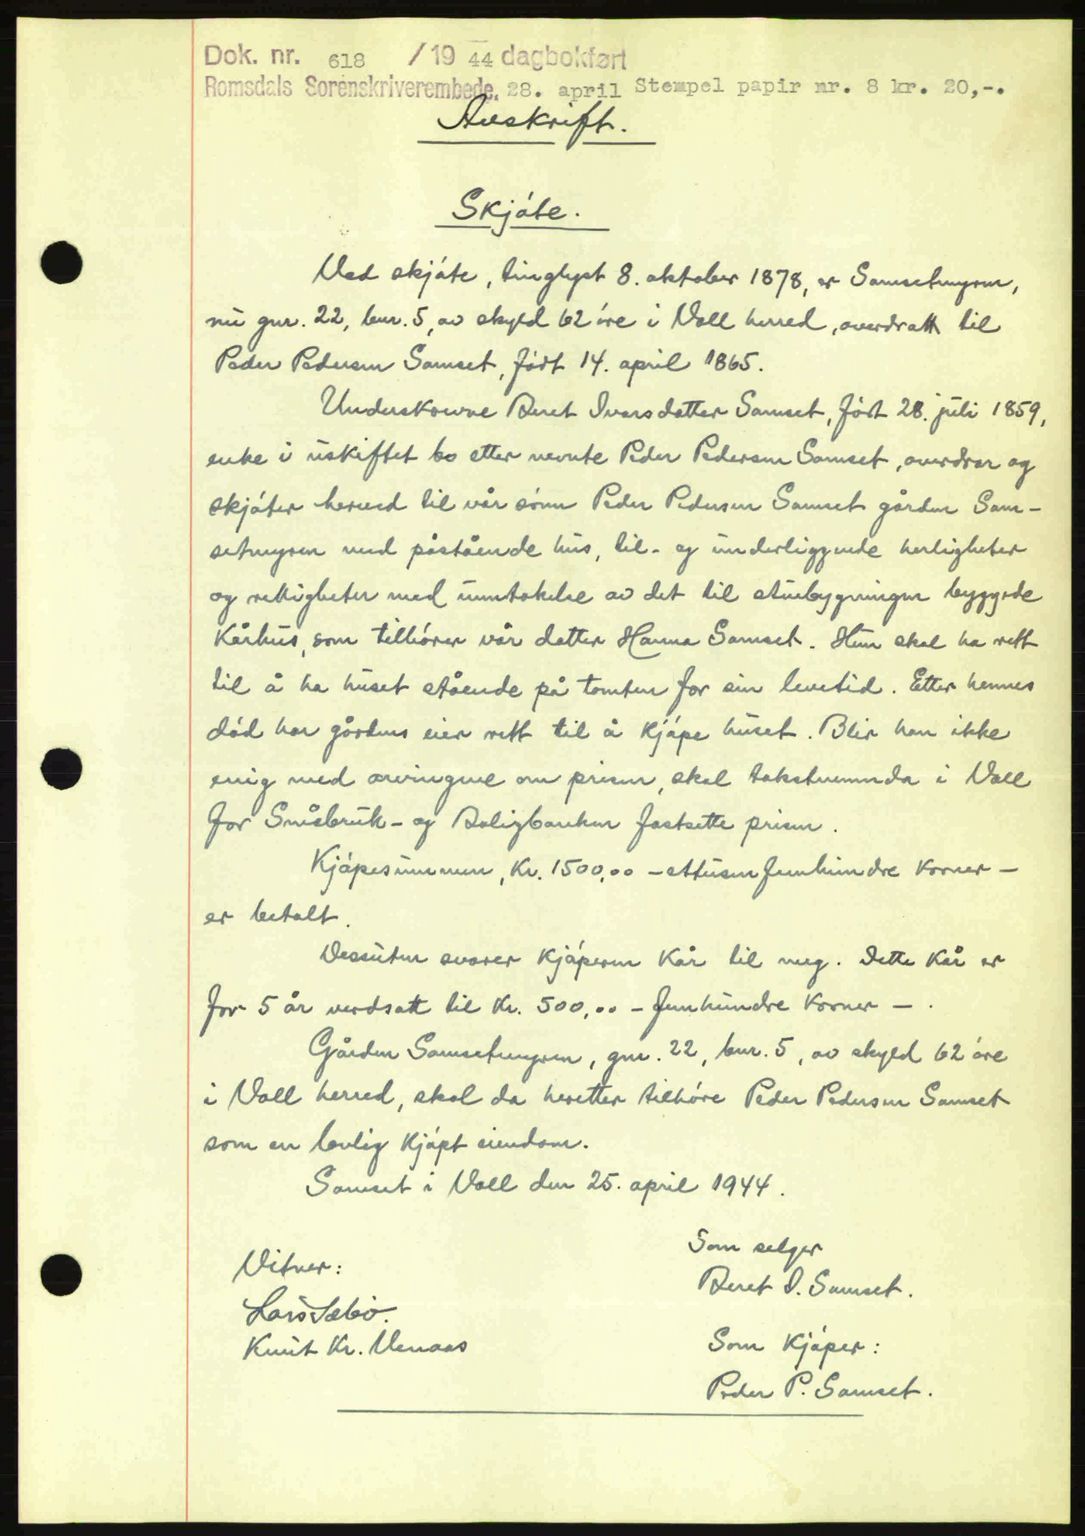 Dok. nr. 618 / 19 44 dagbokført
Romsdals Sorenskriverembede. 28. april Stempel papir nr. 8 kr. 20,-.
Avskrift.
Skjóte.
Ved skjóte, tinglyst 8. oktober 1878, er Samsetmyren,
nu gnr. 22, bnr. 5, av skyld 62 óre i Voll herred, overdratt til
Peder Pedersen Samset, fódt 14. april 1865.
Underskrevne Beret Iversdatter Samset, fódt 28. juli 1859,
enke i uskiftet bo etter nevnte Peder Pedersen Samset, overdrar og
skjóter herved til vår sónn Peder Pedersen Samset gården Sam-
setmyren med påstående hus, til- og underliggende herligheter
og rettigheter med unntakelse av det til stuebygningen byggede
kårhus, som tilhórer vår datter Hanna Samset. Hun skal ha rett
til å ha huset stående på tomten for sin levetid. Etter hennes
dód har gårdens eier rett til å kjópe huset. Blir han ikke
enig med arvingene om prisen, skal takstnemnda i Voll
for Småbruk- og Boligbanken fastsette prisen.
Kjópesummen, kr. 1500,00 - ettusenfemhundre kroner -
er betalt.
Dessuten svarer kjóperen kår til meg. Dette kår er
for 5 år verdsatt til kr. 500,00 - femhundre kroner - .
Gården Samsetmyren, gnr. 22, bnr. 5, av skyld 62 óre
i Voll herred, skal da heretter tilhóre Peder Pedersen Samset
som en lovlig kjópt eiendom.
Samset i Voll den 25. april 1944.
Som selger
Vitner:
Beret I. Samset.
Lars Sæbó.
Knut Kr. Venaas
Som kjóper:
Peder P. Samset.